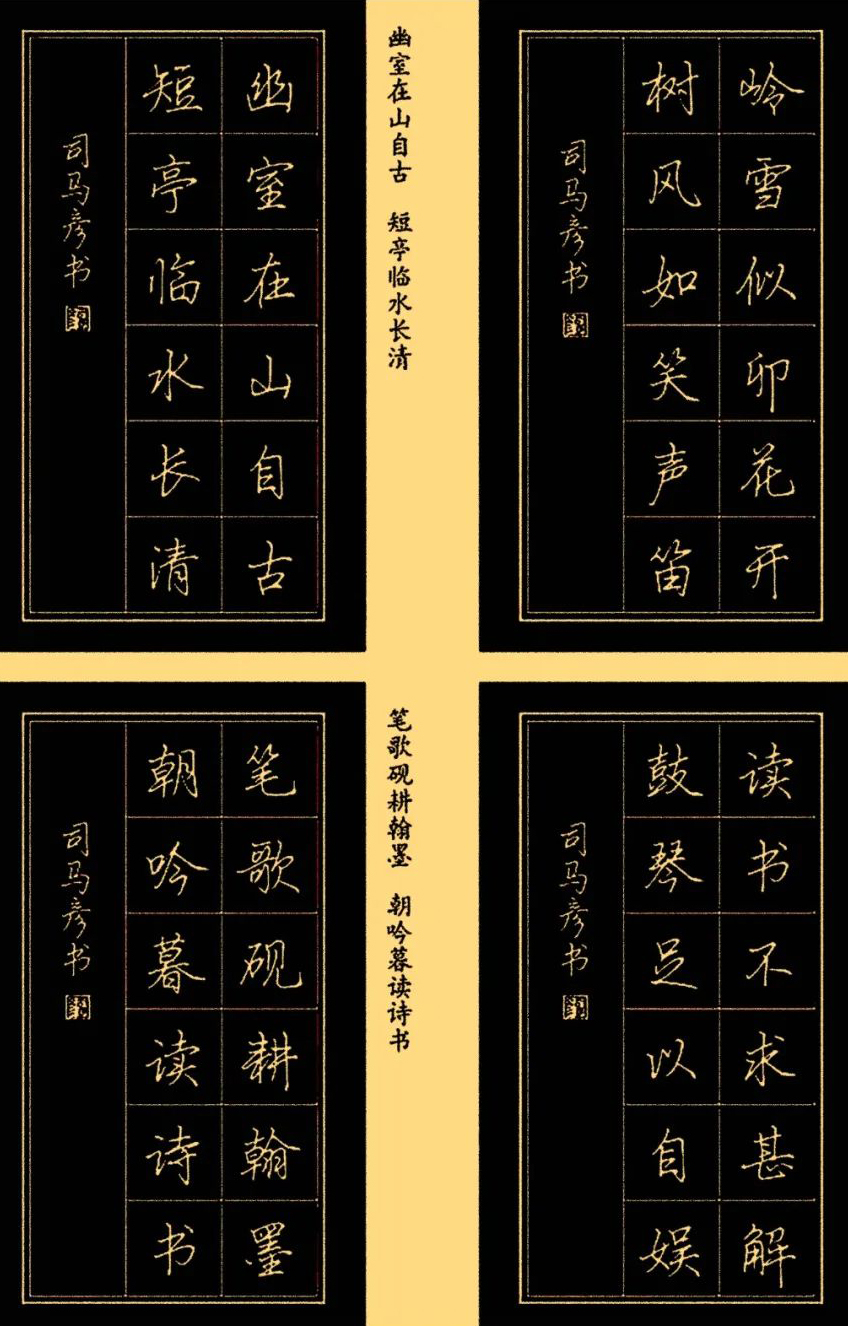 岭雪似卯花开
树风如笑声笛
司马彦书
幽室在山自古 短亭临水长清
幽室在山自古
短亭临水长清
司马彦书
读书不求甚解
鼓琴足以自娱
司马彦书
笔歌砚耕翰墨 朝吟暮读诗书
笔歌砚耕翰墨
朝吟暮读诗书
司马彦书